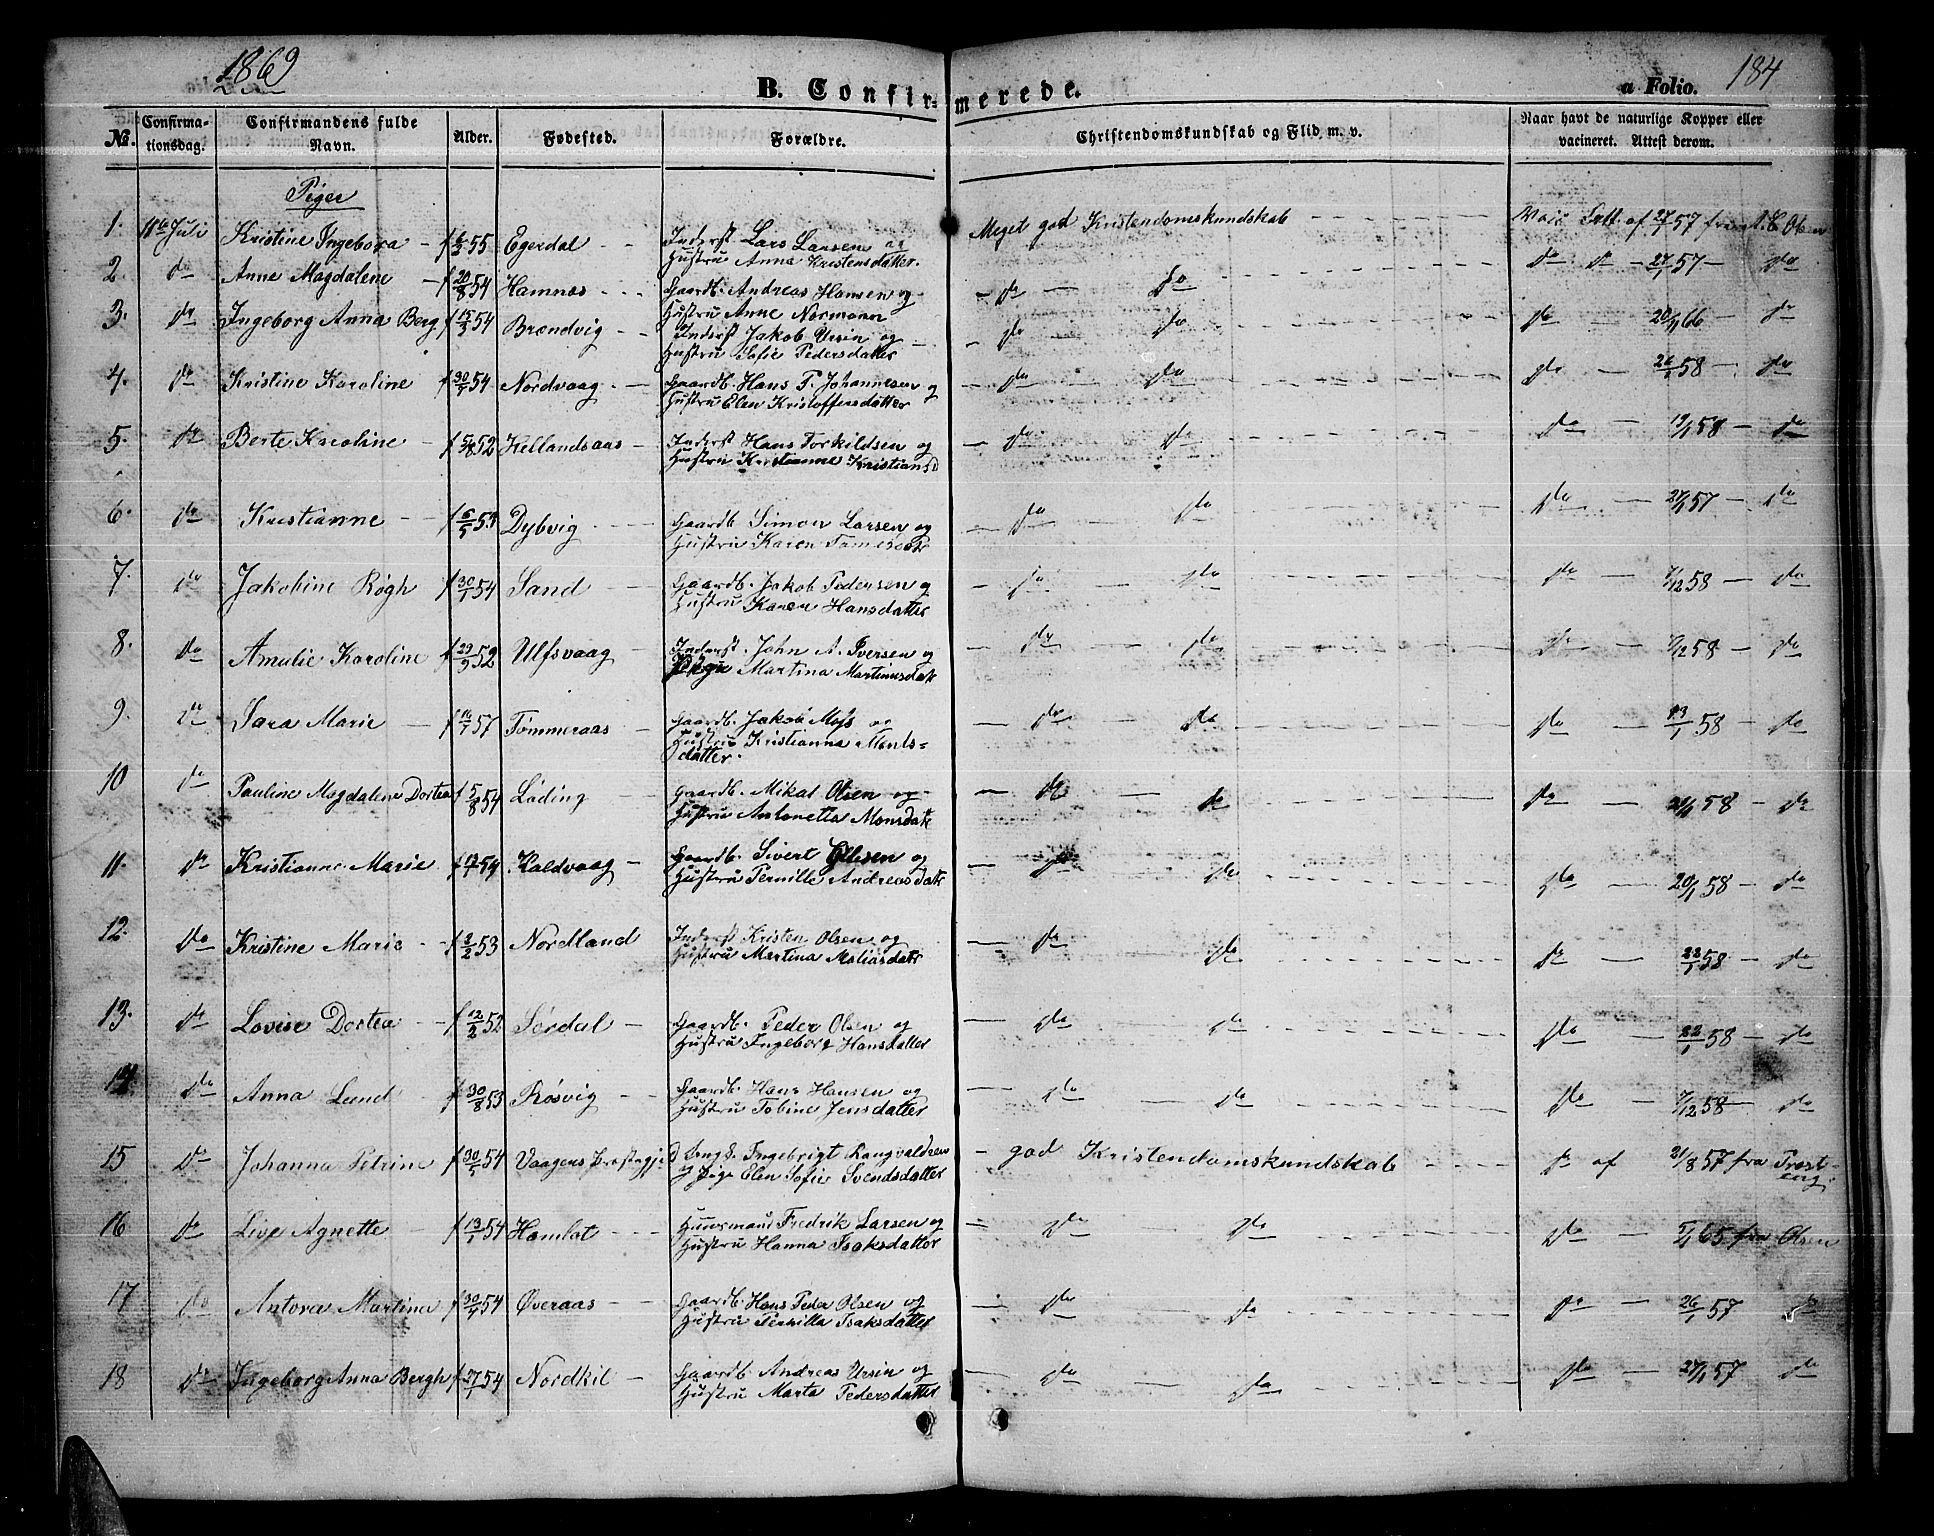 1869
184
B. Confirmerede.
a Folio.
No. Confirmationsdag. Confirmandens fulde Navn. Alder. Fødested. Forældre. Christendomskundskab og Flid m. v. Naar havt de naturlige Kopper eller vacineret. Attest derom.
Piger
1. Juli Kristine Ingebora f 55 Egerdal Inderst Lars Larsen og Hustru Anna Kristensdatter. Meget god Kristendomskundskab Att. af 57 Olsen
2 do Anne Magdalene f 20/8 54 Hamnes Gaardb. Andreas Hansen og Hustru Anne Normann do do do do 27/1 57 do
3. do Ingeborg Anna Berg f 54 Brændvig Inderst Jakob Ursin og Hustru Sofie Pedersdatter do do do 66 do
4. do Kristine Karoline f 54 Nordvaag Gaardb. Hans P. Johannesen og Hustru Elen Kristoffersdatter do do do 58 do
5. do Berte Karoline f 5/8 52 Kellandsaas Inderst Hans Torkildsen og Hustru Kristianne Kristiansd do do do 58 do
6. do Kristianne f 53 Dybvig Gaardb. Simon Larsen og Hustru Karen do do do 57 do
7. do Jakobine Røgh f 30/1 54 Sand Gaardb. Jakob Pedersen og Hustru Karen Hansdatter do do do 58 do
8. do Amalie Karoline f 52 Ulfsvaag Inderst. John A. Iversen og Pige Martina Martinusdatr do do do 58 do
9. do Sara Marie f 57 Tømmeraas Gaardb. Jakob og Hustru Kristianna Montsdatter. do do do 58 do
10 do Pauline Magdalene Dortea f 5/8 54 Løding Gaardb. Mikal Olsen og Hustru Antonetta Monsdatr do do do 58 do
11. do Kristianne Marie f 54 Kaldvaag Gaardb. Sivert Olsen og Hustru Pernille Andreasdatr do do do 20/1 58 do
12. do Kristine Marie f 53 Nordland Inderst Kristen Olsen og Hustru Martina do do do 22/1 58 do
13. do Lovise Dortea f 12/2 52 Sørdal Gaardb. Peder Olsen og Hustru Ingeborg Hansdatter do do do 22/1 58 do
14 do Anna Lund f 30/8 53 Røsvig Gaardb. Hans Hansen og Hustru Tobine Jensdatter do do do 58 do
15 do Johanna Petrine f 30/5 54 Vaagens Ungk. Ingebrigt Rangvaldsen og Pige Elen Sofie Svendsdatter god Kristendomskundskab do af 21/8 57 fra
16 do Live Agnette f 13/1 54 Hamlot Huusmand Fredrik Larsen og Hustru Hanna Isaksdatter do do do 65 fra Olsen
17 do Antora Martina f 30/4 54 Øveraas Gaardb. Hans Peder Olsen og Hustru Pernilla Isaksdatter do do do 26/1 57 do
18 do Ingeborg Anna Bergh f 27/1 54 Nordkil Gaardb Andreas Ursin og Hustru Marta Pedersdatter do do do 27/1 57 do